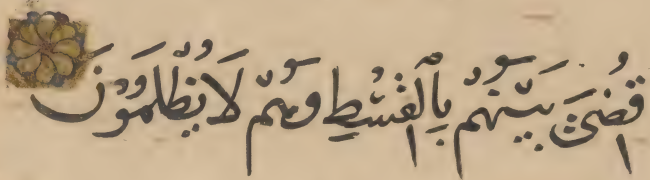 قُضِىَ بَيْنَهُمْ بِالْقِسْطِ وَهُمْ لَا يُظْلَمُوْنَ